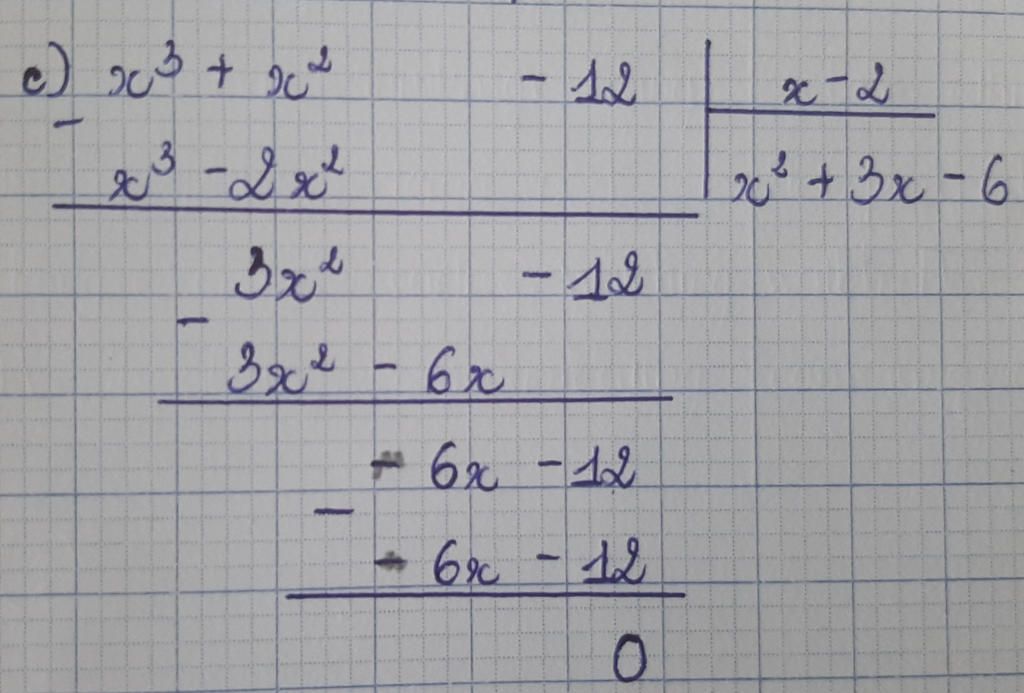 c) x³ + x² - 12 | x - 2
-
x³ - 2x² | x² + 3x - 6
3x² - 12
-
3x² - 6x
- 6x - 12
-
- 6x - 12
0